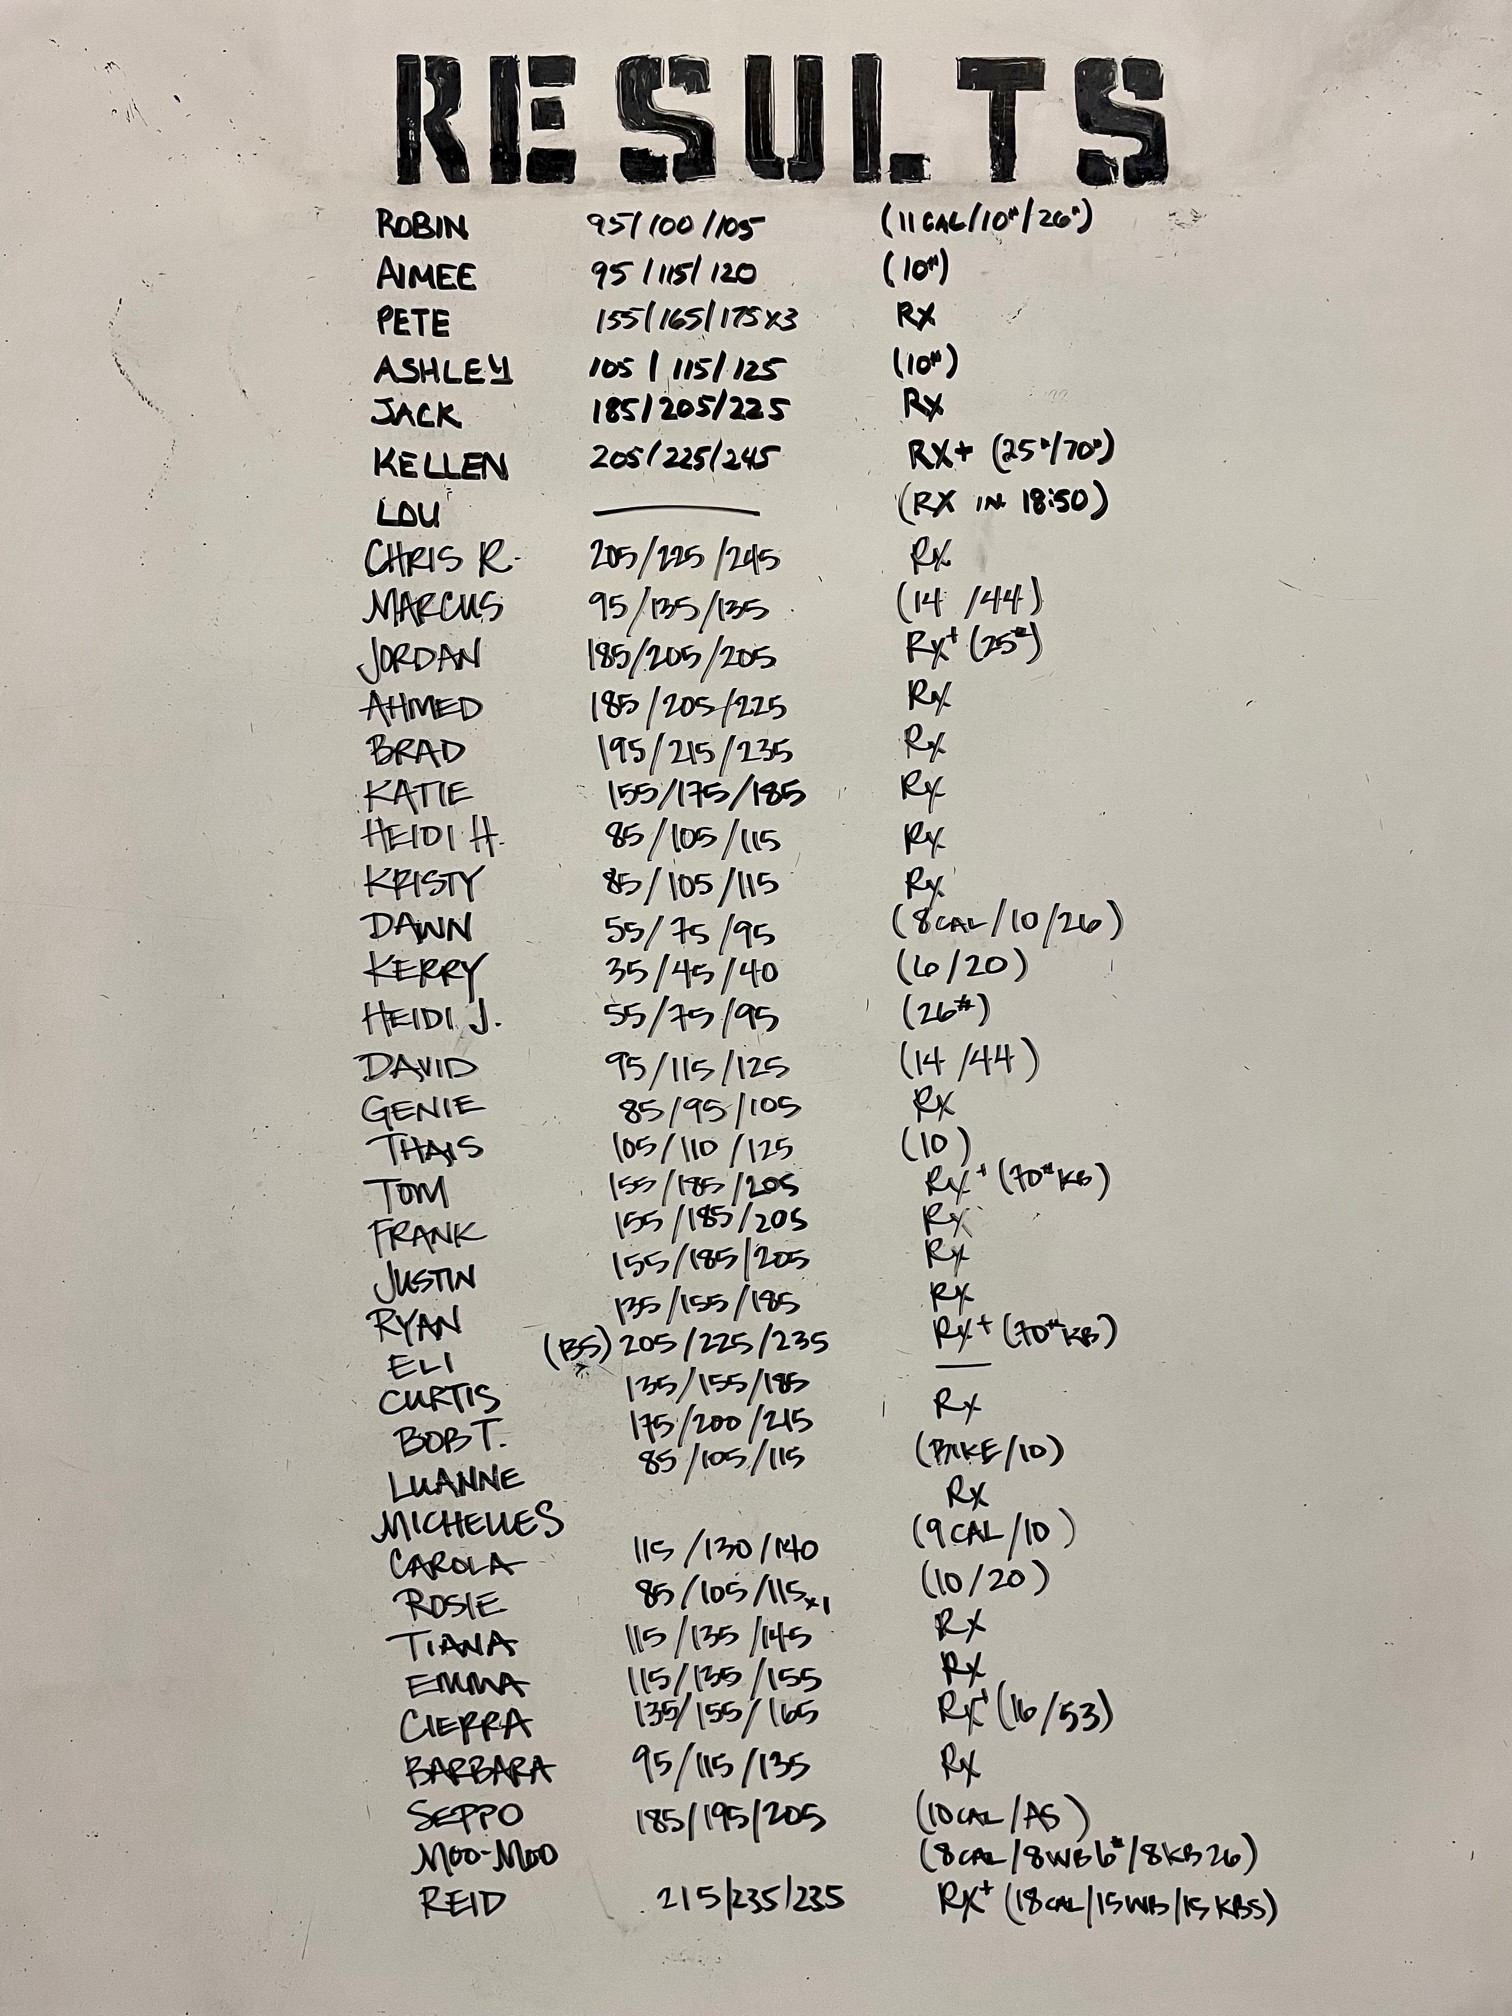 RESULTS
ROBIN 95/100/105 (11 CAL/10#/26#)
AIMEE 95/115/120 (10#)
PETE 155/165/175x3 RX
ASHLEY 105/115/125 (10#)
JACK 185/205/225 RX
KELLEN 205/225/245 RX+ (25#/70#)
LOU — (RX IN 18:50)
CHRIS R. 205/225/245 RX
MARCUS 95/135/135 (14 /44)
JORDAN 185/205/205 RX+ (25#)
AHMED 185/205/225 RX
BRAD 195/215/235 RX
KATIE 155/175/185 RX
HEIDI H. 85/105/115 RX
KRISTY 85/105/115 RX
DAWN 55/75/95 (8 CAL/10/26)
KERRY 35/45/40 (6/20)
HEIDI J. 55/75/95 (26#)
DAVID 95/115/125 (14 /44)
GENIE 85/95/105 RX
THAIS 105/110/125 (10)
TOM 155/185/205 RX+ (70# KB)
FRANK 155/185/205 RX
JUSTIN 155/185/205 RX
RYAN 135/155/185 RX
ELI (BS) 205/225/235 RX+ (70# KB)
CURTIS 135/155/185 —
BOB T. 175/200/215 RX
LUANNE 85/105/115 (BIKE/10)
MICHELLE S RX
CAROLA 115/130/140 (9 CAL/10)
ROSIE 85/105/115x1 (10/20)
TIANA 115/135/145 RX
EMMA 115/135/155 RX
CIERRA 135/155/165 RX+ (16/53)
BARBARA 95/115/135 RX
SEPPO 185/195/205 (10 CAL/AS)
MOO-MOO (8 CAL/8 WB 6#/8 KB 26)
REID 215/235/235 RX+ (18 CAL/15 WB/15 KBS)